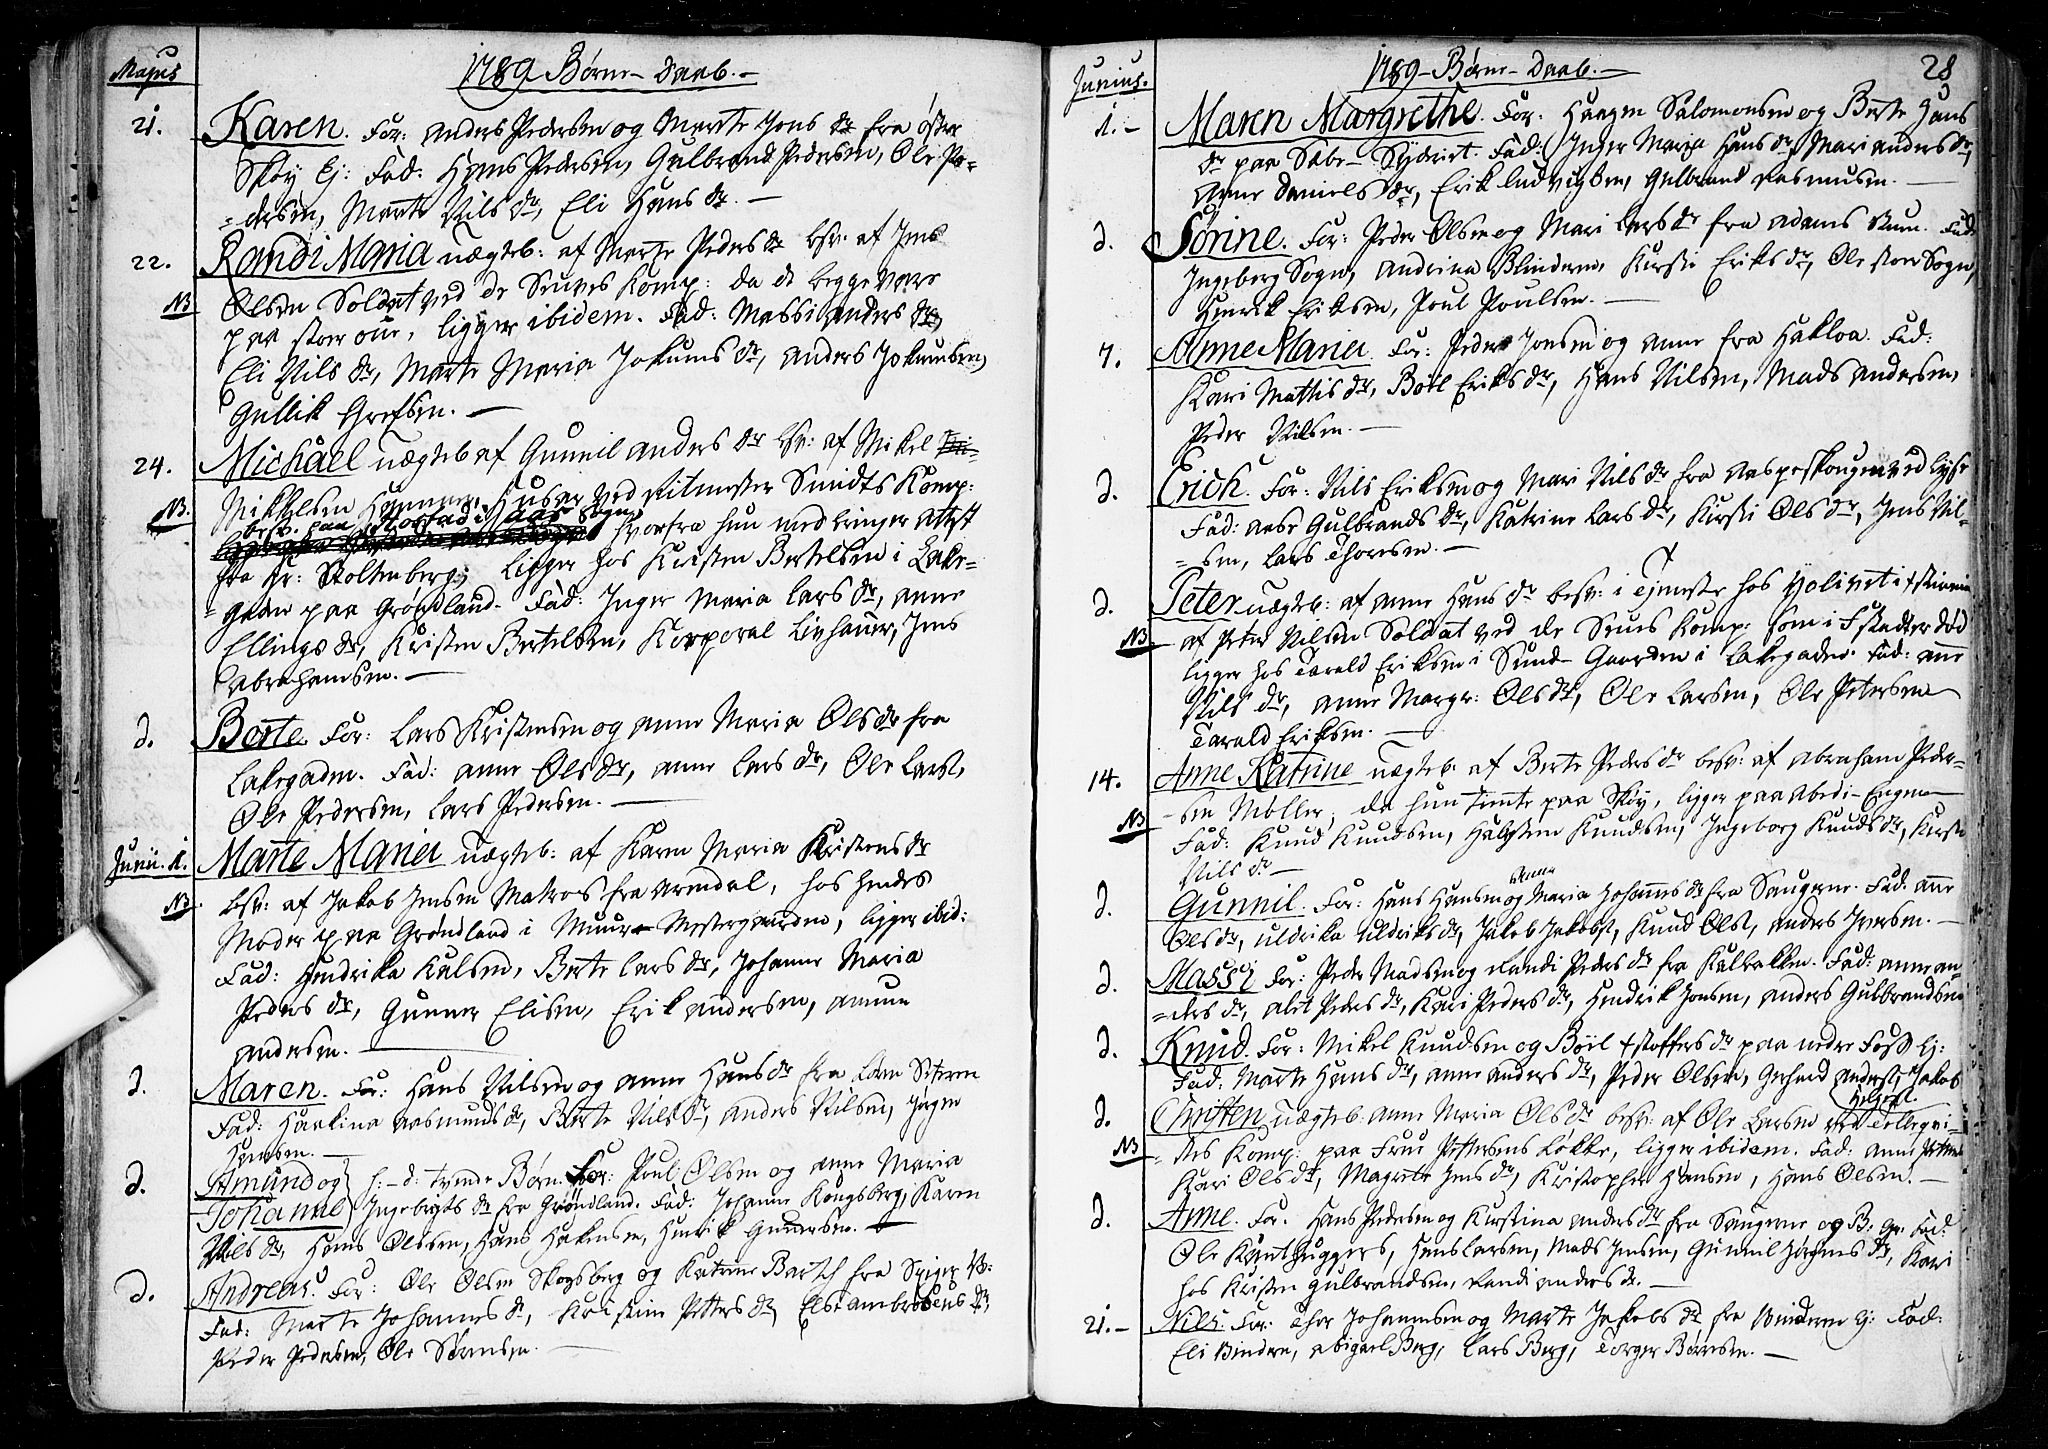 Majus
1789 Børne-Daab.-
21. Karen. For: Anders Pedersen og Marte Jons dr fra øster
Skøy Ej: Fad: Hans Pedersen, Gulbrand Pedersen, Ole Pe-
=dersen, Marte Nils dr, Eli Hans dr. -
22. Randi Maria uægteb: af Marte Peders dr besv: af Jens
NB Olsen Soldat ved de Seues Komp: da de begge vare
paa stor øue, ligger ibidem. Fad: Massi Anders dr,
Eli Nils dr, Marte Maria Jokums dr, Anders Jokumsen,
Gullik Grefsen. -
24. Michael uægteb af Gunnil Anders dr besv: af Mikel
NB. Mikkelsen Husar ved Ritmester Smidts Komp:
besv. paa Korstad i Aas Sogn hvorfra hun medbringer Attest
fra Hr: Stoltenberg; ligger hos Kristen Bertelsen i Lake-
=gaden paa Grøndland. Fad: Inger Maria Lars dr, Anne
Ellings dr, Kristen Bertelsen, Korporal Livhauer, Jens
Abrahamsen. -
d. Berte. For: Lars Kristensen og Anne Maria Ols dr fra
Lakegaden. Fad: Anne Ols dr, Anne Lars dr, Ole Larss,
Ole Pedersen, Lars Pedersen. -
Junii. 1. Marte Maria uægteb: af Karen Maria Kristens dr
NB besv: af Jakob Jensen Matros fra Arendal, hos hendes
Moder paa Grøndland i Muur-Mestergaarden, ligger ibid:
Fad: Hendrika Kulsen, Berte Lars dr, Johanne Maria
Peders dr, Gunner Elisen, Erik Andersen, Amun
Andersen. -
d. Maren. For: Hans Nilsen og Anne Hans dr fra Sæteren
Fad: Haakina Aasmunds dr, Berte Nils dr, Anders Nilsen, Jørgen
Hansen. -
d. Amund og } h:-d: tvende Børn. For: Poul Olsen og Anne Maria
Johanne } Ingebrigts dr fra Grøndland. Fad: Johanne Kongsberg, Karen
Nils dr, Hans Olsen, Hans Hakensen, Henrik Gundersen. -
d. Andreas. For: Ole Olsen Skogsberg og Katrine Bartsch fra
Fad: Marte Johannes dr, Kristine Petters dr, Else Ambrosius dr,
Peder Pedersen, Ole Sørensen. -
Junius.
1789-Børne-Daab.-
28
1.- Maren Margrethe. For. Haagen Salomonsen og Berte Hans
dr paa Sabe-Sydvist. Fad: Inger Maria Hans dr, Mari Anders dr,
Anne Daniels dr, Erik Ludvigsen, Gulbrand Rasmussen. -
d. Sörine. For: Peder Olsen og Mari Lars dr fra Adams Rum. Fad:
Ingeborg Sogn, Andrina Blindern, Kirsti Eriks dr, Ole store Sogn,
Henrik Eriksen, Poul Poulsen. -
7. Anne Maria. For: Peder Jonsen og Anne fra Hakloa. Fad:
Kari Mattis dr, Boil Eriks dr, Hans Nilsen, Mads Andersen,
Peder Nilsen. -
d. Erich. For: Nils Eriksen og Mari Nils dr fra Aaspeskougen ved Lyse
Fad: Aase Gulbrands dr, Katrine Lars dr, Kirsti Ols dr, Jens Nil-
=sen, Lars Thoresen. -
d. Peter uægteb: af Anne Hans dr besv: i Tjeneste hos
NB af Peter Nilsen Soldat ved de Seues Komp: som i Fstadter død
ligger hos Tarald Eriksen i Sund-Gaarden i Lakegaden. Fad: Anne
Nils dr, Anne Margr: Ols dr, Ole Larsen, Ole Petersen
Tarald Eriksen. -
14. Anne Katrine uægteb: af Berte Peders dr besv: af Abraham Peder-
NB -sen Møller, da hun tiente paa Skøy, ligger paa Abedi-Engen
Fad: Knud Knudsen, Halsten Knudsen, Ingeborg Knuds dr, Kirsti
Nils dr -
d. Gunnil. For: Hans Hansen og Anne Maria Johannes dr fra Saugerne. Fad: Anne
Ols dr, Uldrika Uldriks dr, Jakob Jakobs, Knud Ols, Anders Iversen. -
d. Massi For: Peder Madsen og Randi Peders dr fra Kalbakken. Fad: Anne An-
=ders dr, Alet Peders dr, Kari Peders dr, Hendrik Jonsen, Anders Gulbrandsen
d. Knud. For: Mikel Knudsen og Böil Kstoffers dr paa nedre Foss Ej:
Fad: Marte Hans dr, Anne Anders dr, Peder Olsen, Gerhard Anders, Jakob
Helges.
d. Christen uægteb. Anne Maria Ols dr besv: af Ole Larsen ved Tellequi-
NB =stes Komp: paa Frue Pettersens Løkke, ligger ibidem. Fad: Anne Petters
Kari Ols dr, Magrete Jens dr, Kristopher Hansen, Hans Olsen. -
d. Anne. For. Hans Pedersen og Kirstina Anders dr fra Saugerne og B: Gr. Fad:
Ole Kanthuggers, Hans Larsen, Mads Jensen, Gunnil Jörgens dr, Kari
hos Kristen Gulbrandsen, Randi Anders dr. -
21.- Nils. For: Thor Johannesen og Marte Jakobs dr fra Binderen Ej: Fad:
Eli Bindern, Abigael Berg, Lars Berg, Torger Børresen. -